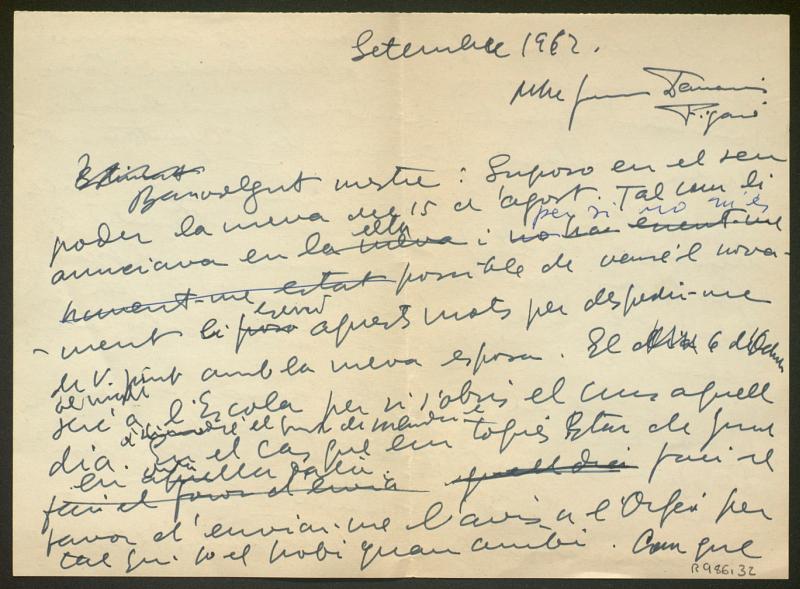 Setembre 1962.
Mtre Joan Tomàs
Figaró
Estimat
Benvolgut mestre: Suposo en el seu
poder la meva del 15 d'agost. Tal com li
anunciava en la meva ella i no hai per si no m'és
havent-me estat possible de veure'l nova-
ment li poso envio aquests mots per despedir-me
de V. junt amb la meva esposa. El dia 6 d'Octubre
al matí
seré a l'Escola per si s'obrís el curs aquell
dia. En el cas que em togués estar de guardia
en aquella data
fari el favor d'enviar aquell dia faci'm el
favor d'enviar-me l'avís a l'Orfeó per
tal que jo el trobi quan arribi. Com que
R.986,32